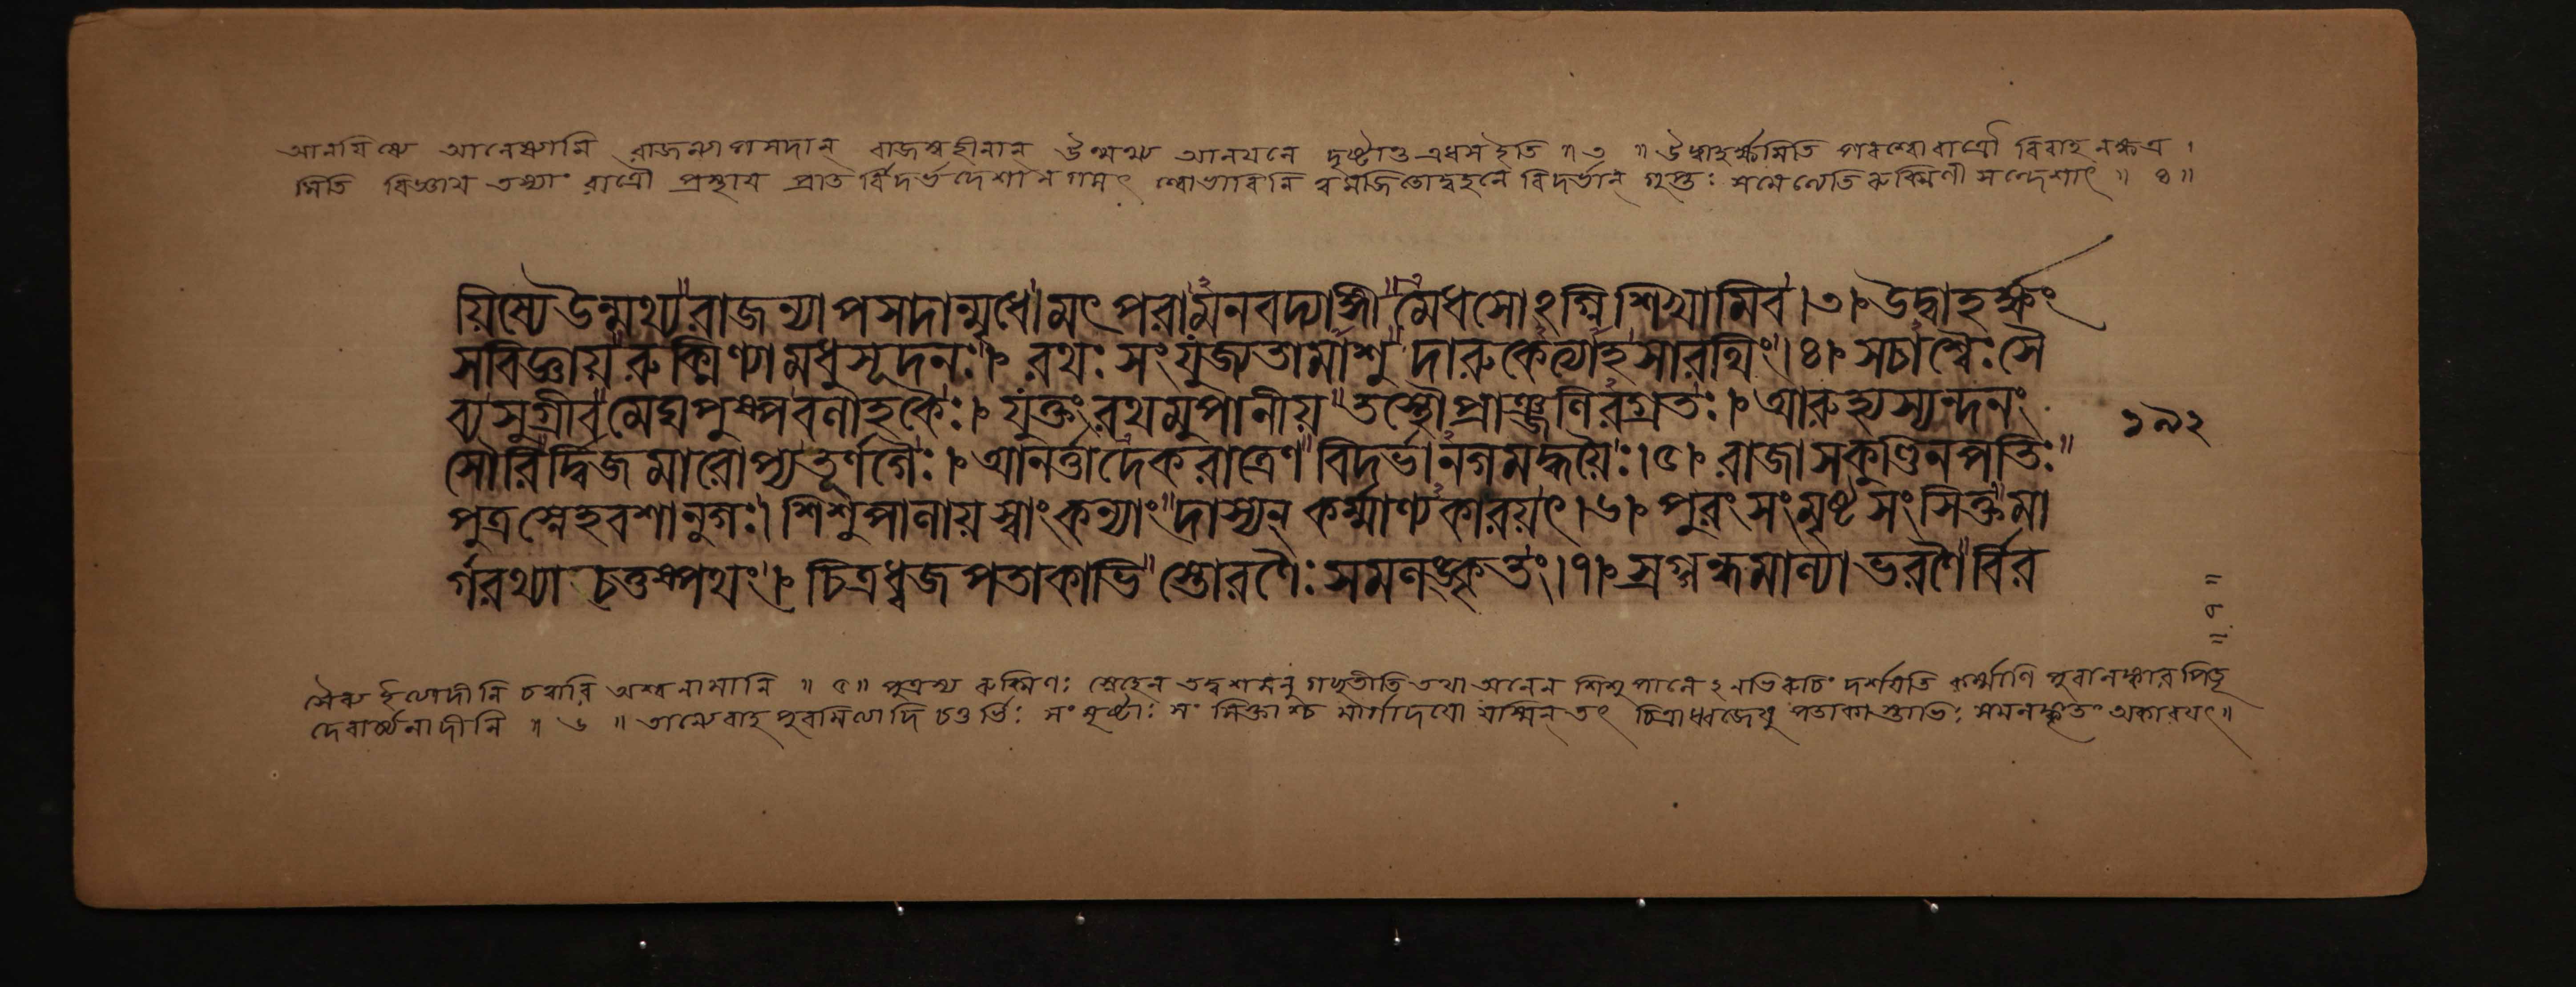 আনয়িষ্যে আনেষ্যামি রাজন্যাপসদান্ রাজন্যহীনান্ উন্মথ্য আনয়নে দৃষ্টান্ত এধস ইতি ॥ ৩ ॥ উদ্বাহর্ক্ষমিতি পরশ্বোরাত্রৌ বিবাহনক্ষত্র ।
মিতি বিজ্ঞায় তস্যাং রাত্রৌ প্রস্থায় প্রাতর্বিদর্ভদেশানগমৎ শ্বোভাবিনি ত্বমজিতোদ্বহনে বিদর্ভান্ গুপ্তঃ সমেত্যেতি রুক্মিণী সন্দেশাৎ ॥ ৪ ॥
য়িষ্যে উন্মথ্য রাজন্যাপসদান্মৃধে। মৎপরামনবদ্যাঙ্গী মেধসোঽগ্নিশিখামিব। ৩। উদ্বাহর্ক্ষং
সবিজ্ঞায় রুক্মিণ্যা মধুসূদনঃ। রথঃ সংযুজ্যতামাশু দারুকেত্যাহ সারথিং। ৪। সচাশ্বৈঃ সৈ
ব্যসুগ্রীবমেঘপুষ্পবলাহকৈঃ। যুক্তং রথমুপানীয় তস্থৌ প্রাঞ্জলিরগ্রতঃ। আরুহ্য স্যন্দনং
সৌরির্দ্বিজমারোপ্য তূর্ণগৈঃ। আনর্ত্তাদেকরাত্রেণ বিদর্ভানগমদ্ধয়ৈঃ। ৫। রাজা সকুণ্ডিনপতিঃ
পুত্রস্নেহবশানুগঃ। শিশুপালায় স্বাং কন্যাং দাস্যন্ কর্ম্মাণ্যকারয়ৎ। ৬। পুরং সংমৃষ্টসংসিক্তমা
র্গরথ্যাচতুষ্পথং। চিত্রধ্বজপতাকাভি স্তোরণৈঃ সমলঙ্কৃতং। ৭। স্রগ্গন্ধমাল্যাভরণৈর্বির
১৯২
॥ ৮ ॥
সৈব্য ইত্যাদীনি চত্বারি অশ্বনামানি ॥ ৫ ॥ পুত্রস্য রুক্মিণঃ স্নেহেন তদ্বশমনুগচ্ছতীতি তথা অনেন শিশুপালেঽনভিরুচিং দর্শয়তি কর্ম্মাণি পুরালঙ্কারপিতৃ
দেবার্চ্চনাদীনি ॥ ৬ ॥ তান্যেবাহ পুরমিত্যাদি চতুর্ভিঃ সংমৃষ্টাঃ সংসিক্তাশ্চ মার্গাদয়ো যস্মিন্ তৎ চিত্রা ধ্বজেষু পতাকাস্তাভিঃ সমলঙ্কৃতং অকারয়ৎ ॥